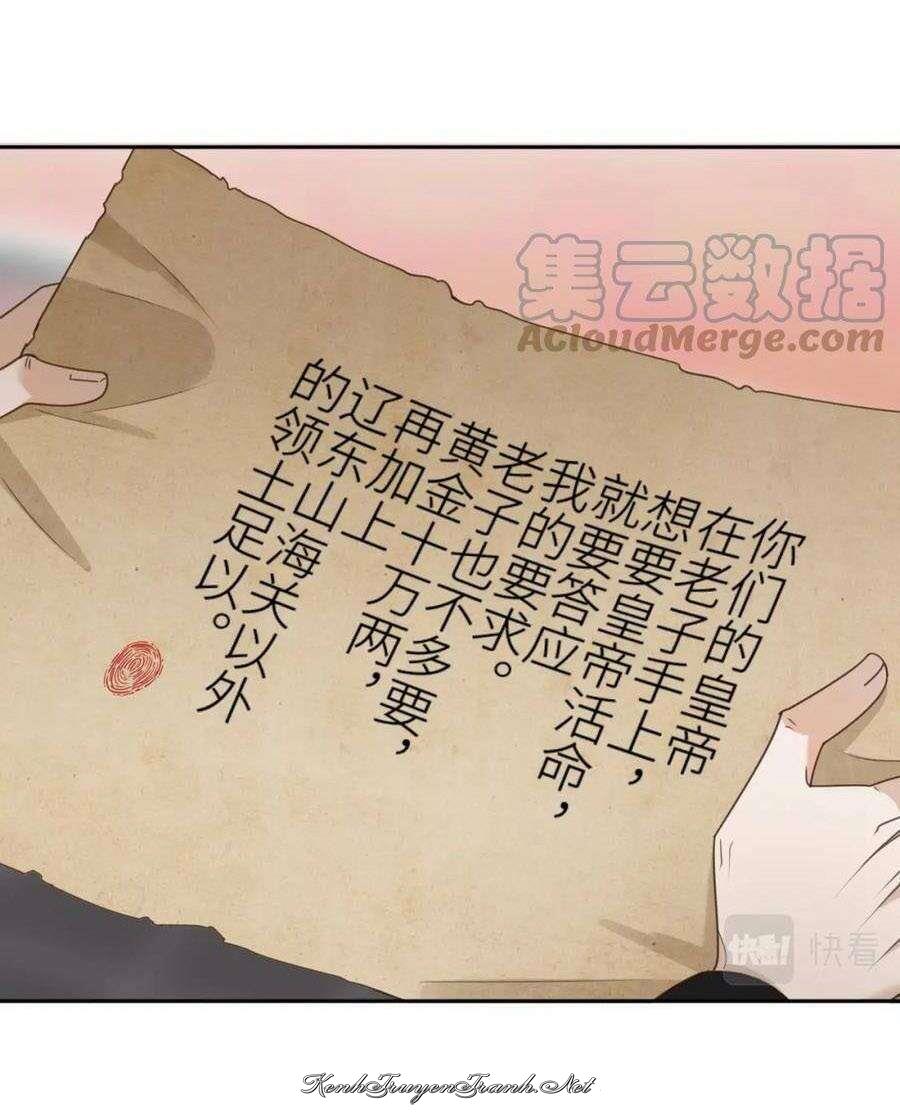 集云数据
ACloudMerge.com
你们的皇帝
在老子手上，
想要皇帝活命，
就要答应
我的要求。
老子也不多要，
黄金十万两，
再加上
辽东山海关以外
的领土足以。
快看!
快看
KenhTruyenTranh.Net